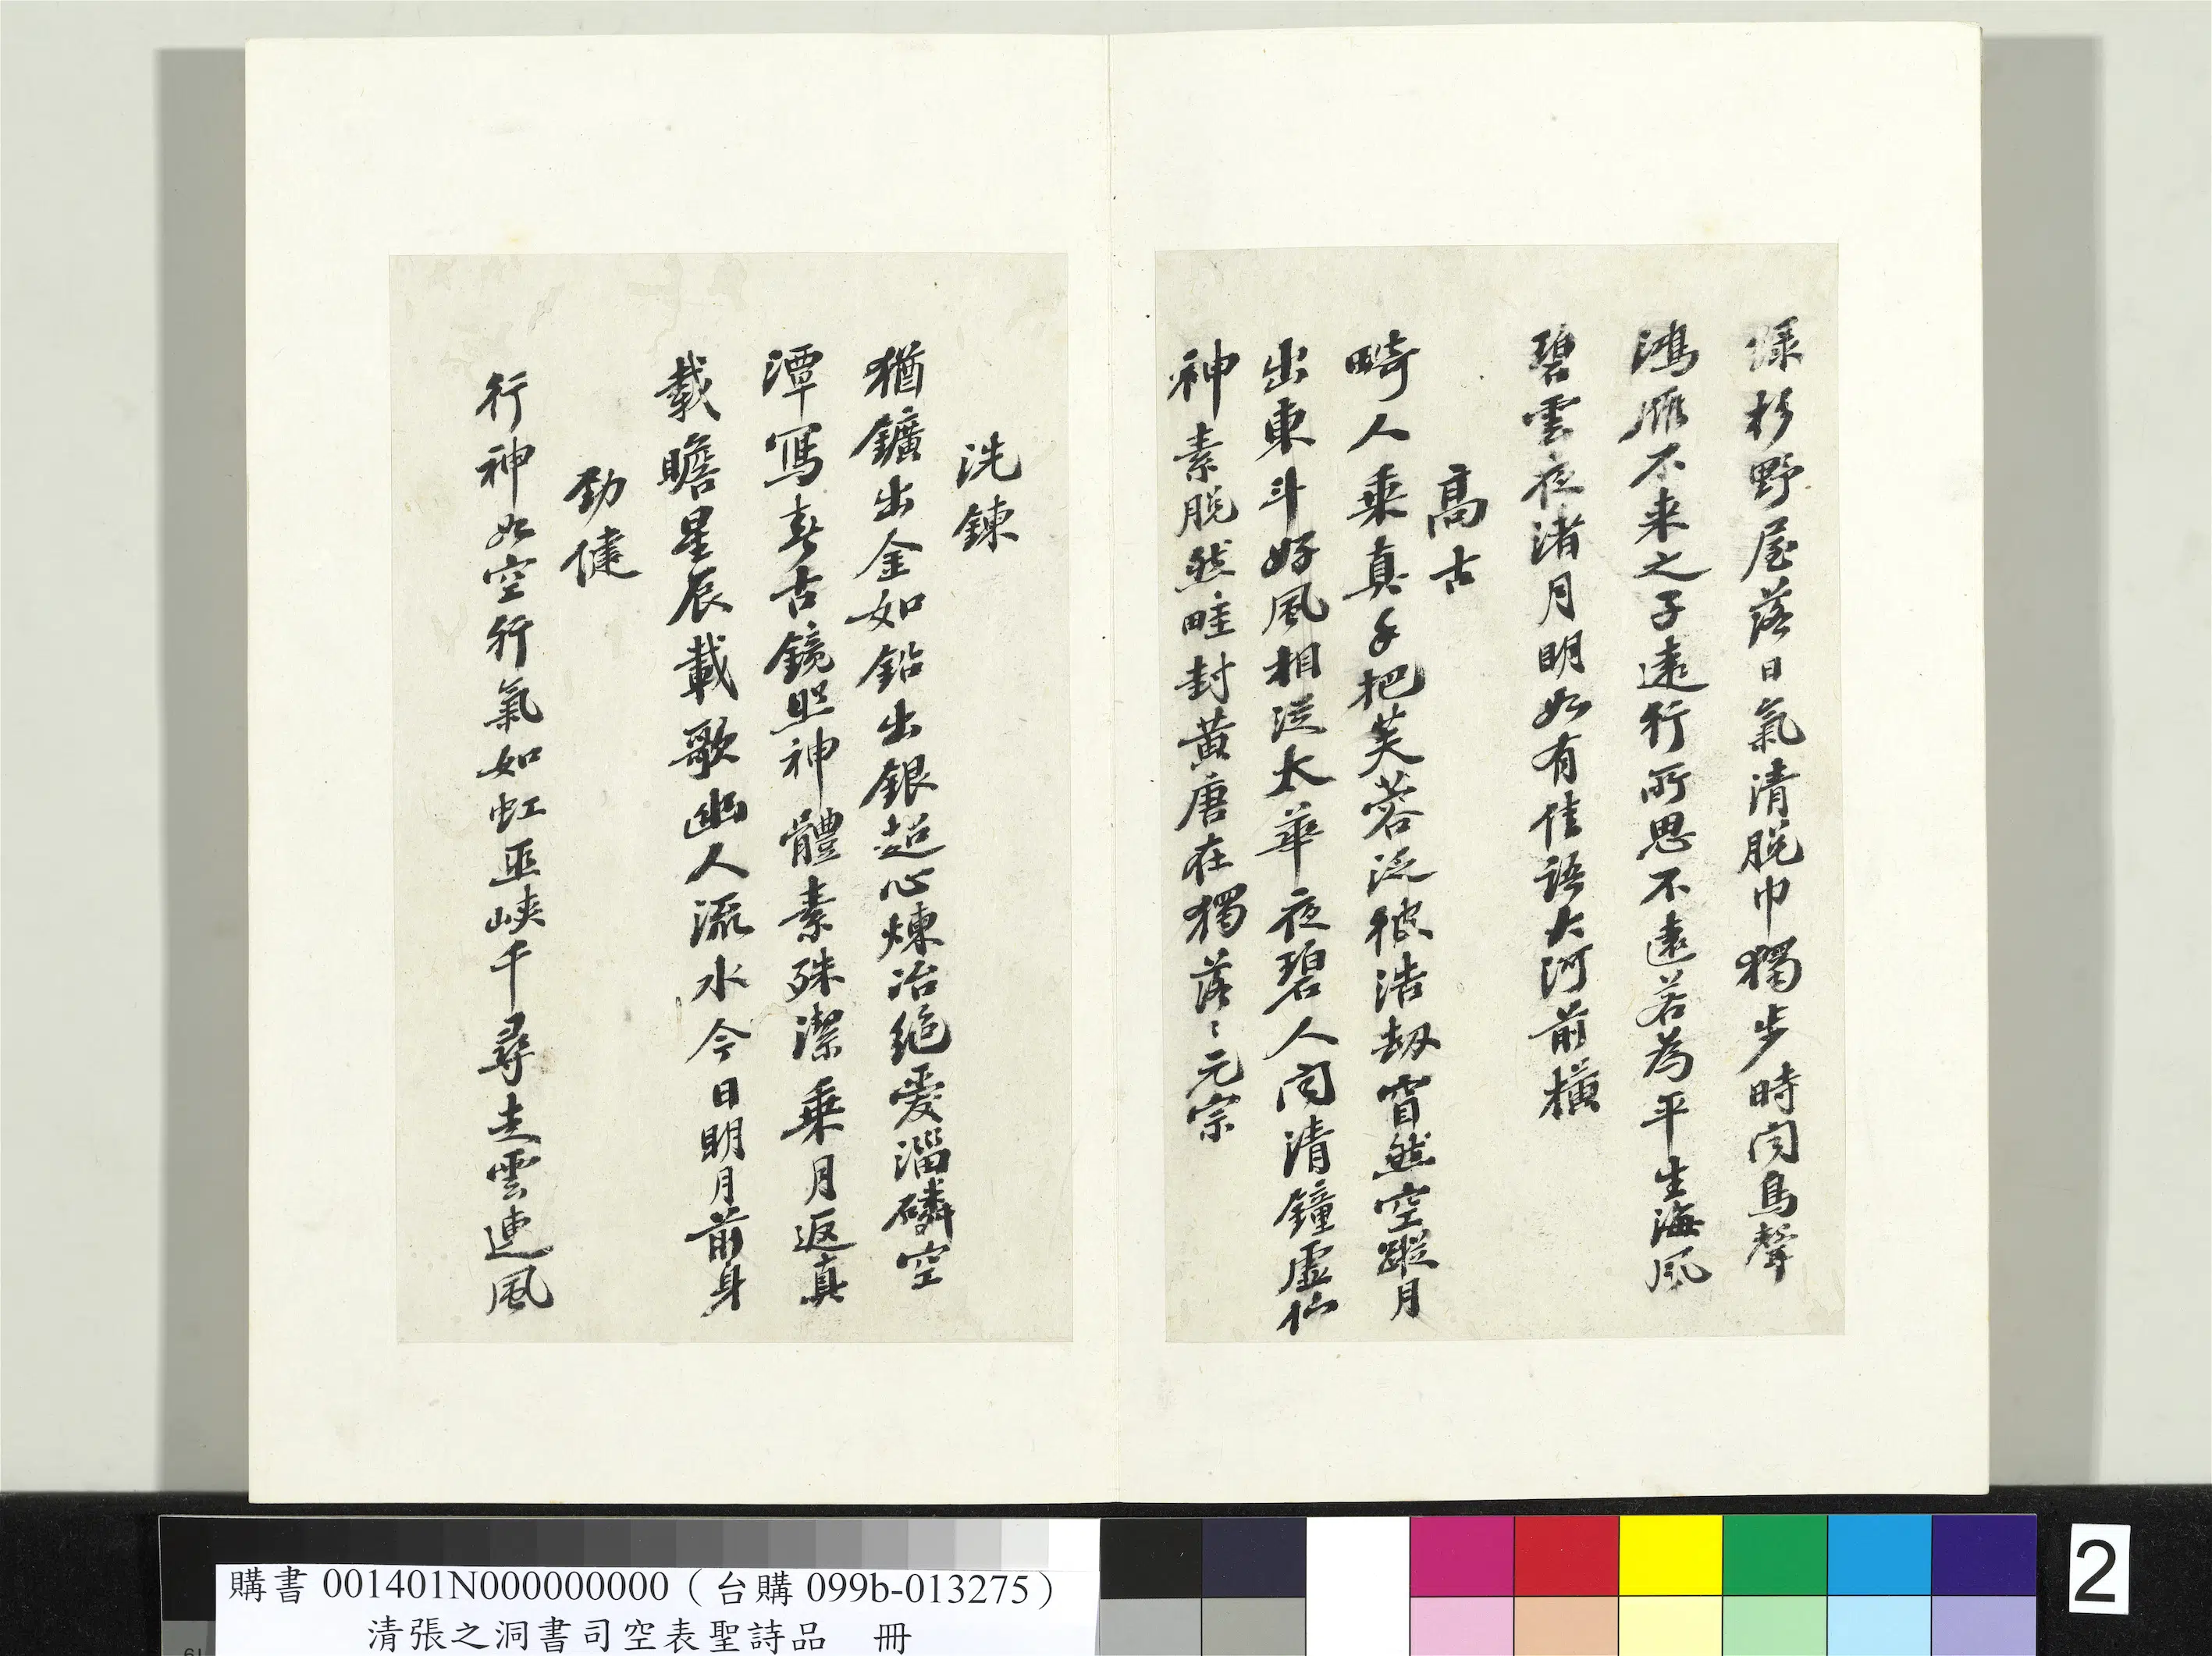 綠杉野屋落日氣清脫巾獨步時聞鳥聲
鴻雁不来之子遠行所思不遠若為平生海風
碧雲夜渚月明如有佳語大河前橫
高古
畸人乗真手把芙蓉泛彼浩劫窅然空蹤月
出東斗好風相従太華夜碧人聞清鐘虛佇
神素脫然畦封黃唐在獨落〻元宗
洗鍊
猶鑛出金如鉛出銀超心煉冶絕愛淄磷空
潭寫春古鏡照神體素殊潔乗月返真
載瞻星辰載歌幽人流水今日明月前身
勁健
行神如空行氣如虹巫峽千尋走雲連風
購書 001401N000000000（台購 099b-013275）
清張之洞書司空表聖詩品 冊
2
19